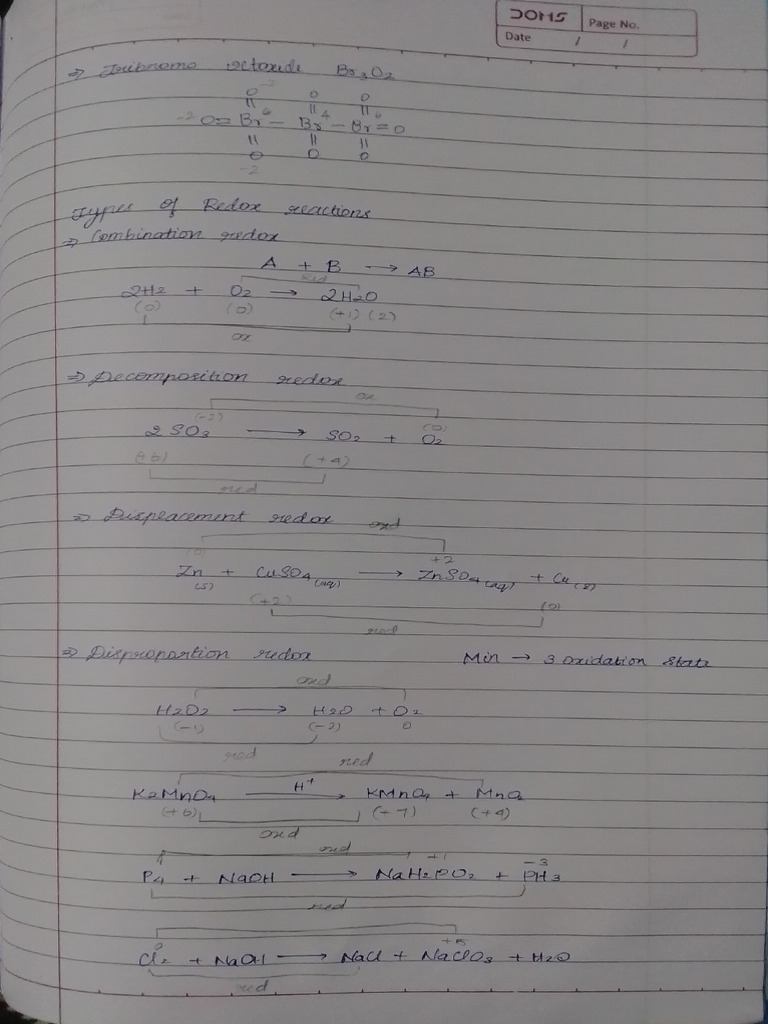 DOMS
Page No.
Date / /
⇒ Tribromo octoxide Br3O2
O -2 O O
|| ||4 ||6
-2 O = Br6 – Br – Br = O
|| || ||
O O O
-2
Types of Redox reactions
⇒ Combination redox
A + B → AB
red
2H2 + O2 → 2H2O
(0) (0) (+1) (2)
ox
⇒ Decomposition redox
ox
(-2) (0)
2 SO3 → SO2 + O2
(+6) (+4)
red
⇒ Displacement redox oxd
(0) +2
Zn(s) + CuSO4(aq) → ZnSO4(aq) + Cu(s)
(+2) (0)
red
⇒ Disproportion redox Min → 3 oxidation state
oxd
H2O2 → H2O + O2
(-1) (-2) 0
red
red
K2MnO4 H+→ KMnO4 + MnO2
(+6) (+7) (+4)
oxd
oxd
+1 -3
P4 + NaOH → NaH2PO2 + PH3
red
0 +5
Cl2 + NaOH → NaCl + NaClO3 + H2O
red